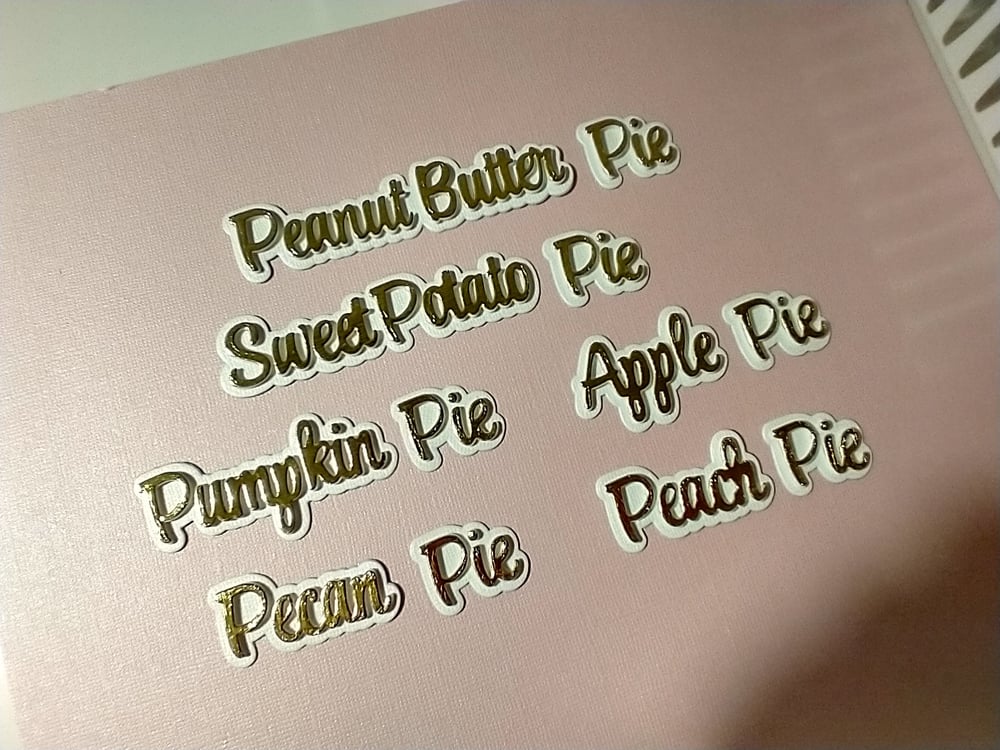 Peanut Butter Pie
Sweet Potato Pie
Apple Pie
Pumpkin Pie
Peach Pie
Pecan Pie